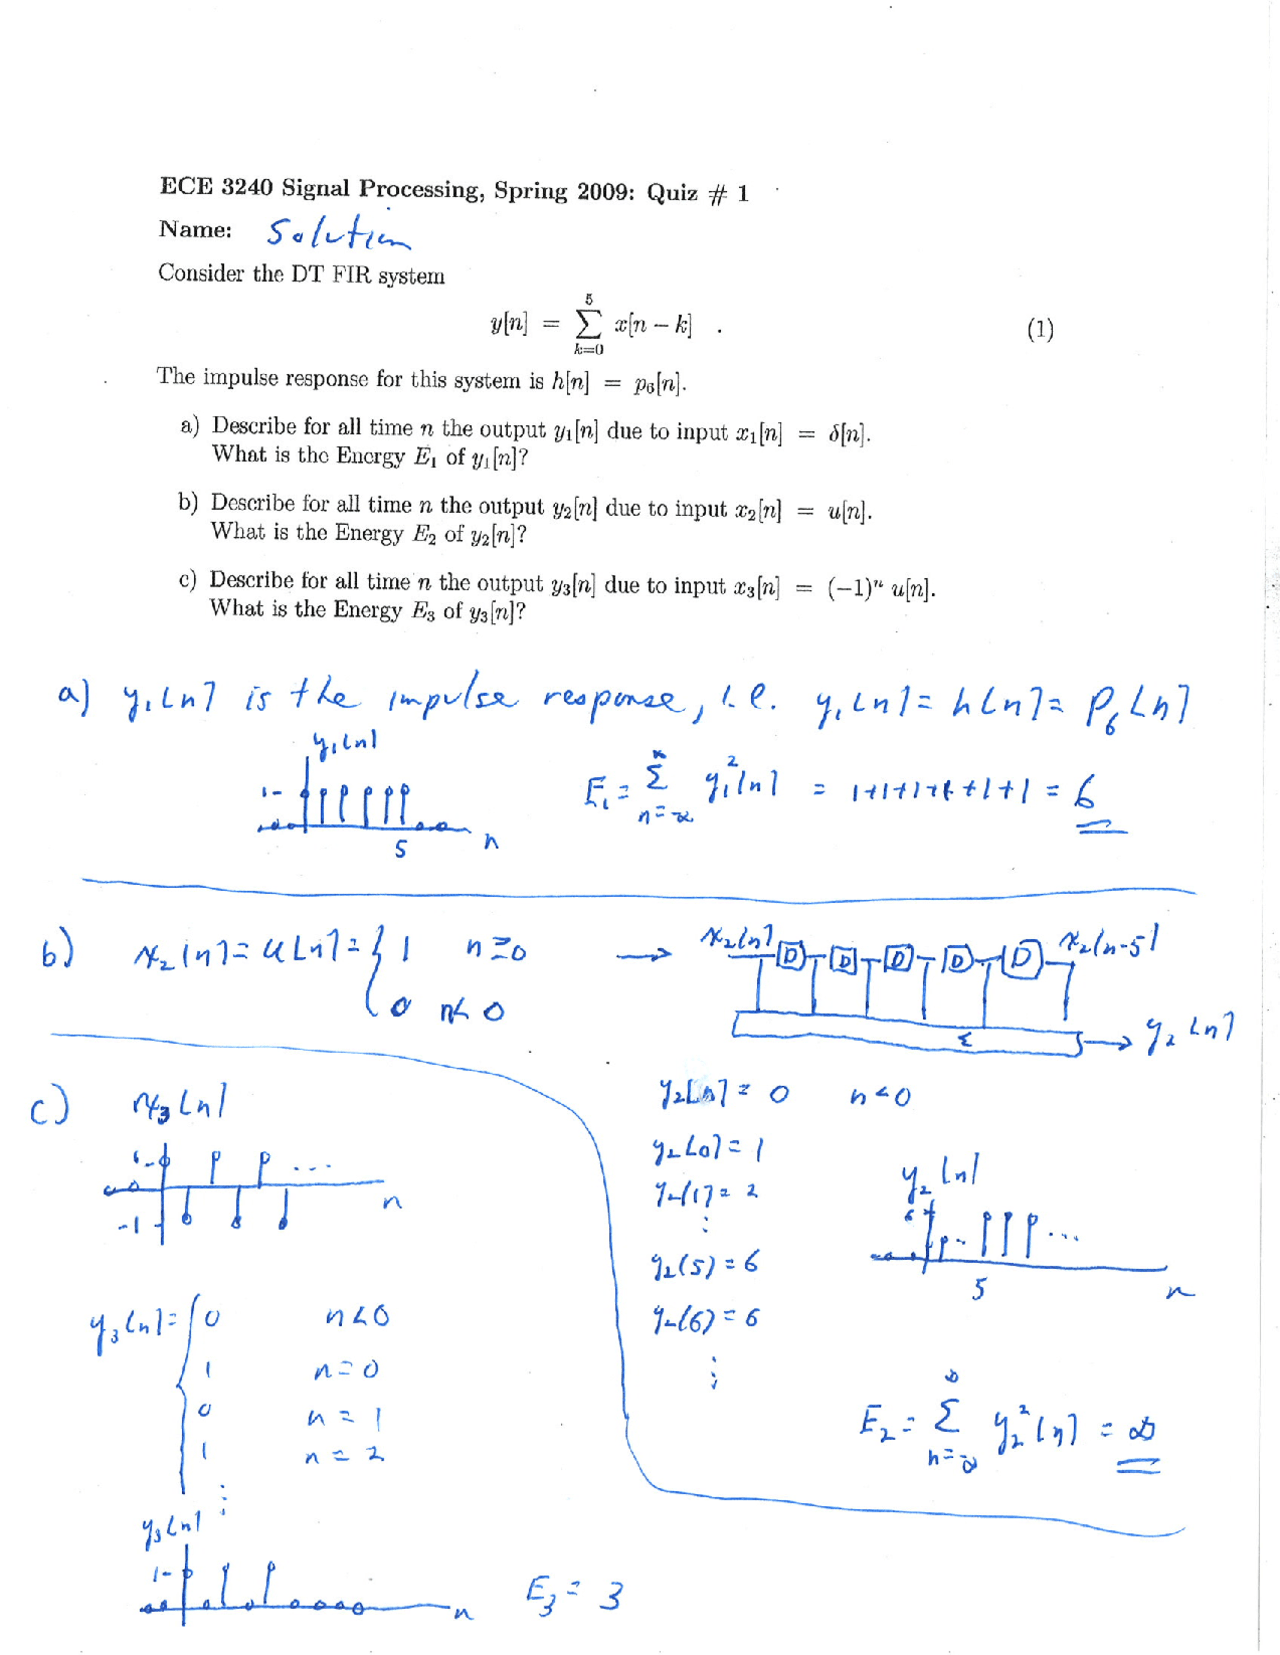 ECE 3240 Signal Processing, Spring 2009: Quiz # 1
Name: Solution
Consider the DT FIR system
y[n] = \sum_{k=0}^{5} x[n − k] . (1)
The impulse response for this system is h[n] = p₆[n].
a) Describe for all time n the output y₁[n] due to input x₁[n] = δ[n].
What is the Energy E₁ of y₁[n]?
b) Describe for all time n the output y₂[n] due to input x₂[n] = u[n].
What is the Energy E₂ of y₂[n]?
c) Describe for all time n the output y₃[n] due to input x₃[n] = (−1)ⁿ u[n].
What is the Energy E₃ of y₃[n]?
a) y₁[n] is the impulse response, i.e. y₁[n] = h[n] = p₆[n]
y₁[n]
1
5 n
E₁ = \sum_{n=-∞}^{∞} y₁²[n] = 1+1+1+1+1+1 = 6
b) x₂[n] = u[n] = { 1 n≥0
0 n<0
→ x₂[n] D D D D D x₂[n-5]
Σ → y₂[n]
y₂[n] = 0 n<0
y₂[0] = 1
y₂[1] = 2
⋮
y₂(5) = 6
y₂(6) = 6
⋮
y₂[n]
6
...
5 n
E₂ = \sum_{n=-∞}^{∞} y₂²[n] = ∞
c) x₃[n]
1 ...
-1 n
y₃[n] = { 0 n<0
1 n=0
0 n=1
1 n=2
⋮
y₃[n]
1
n
E₃ = 3